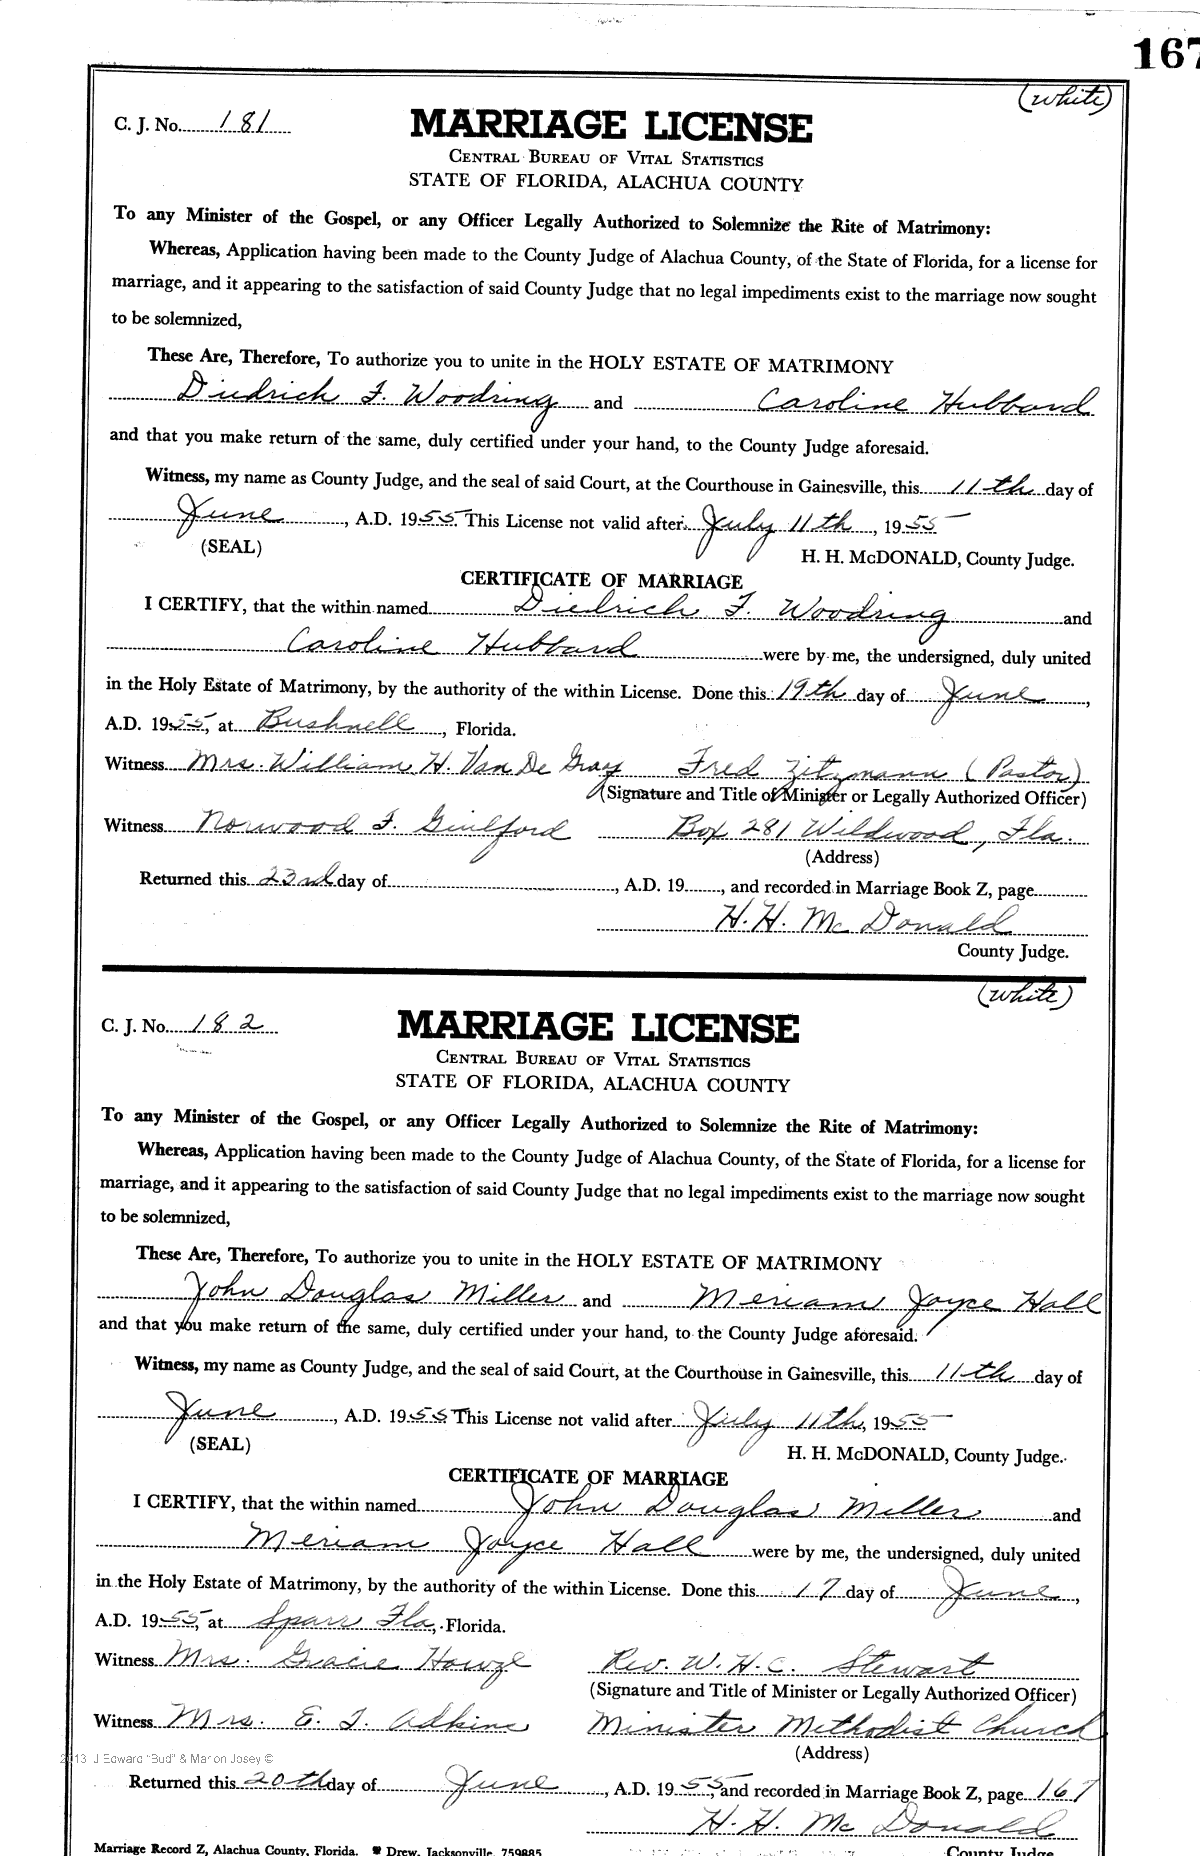 167
(White)
C. J. No. 181
MARRIAGE LICENSE
CENTRAL BUREAU OF VITAL STATISTICS
STATE OF FLORIDA, ALACHUA COUNTY
To any Minister of the Gospel, or any Officer Legally Authorized to Solemnize the Rite of Matrimony:
Whereas, Application having been made to the County Judge of Alachua County, of the State of Florida, for a license for
marriage, and it appearing to the satisfaction of said County Judge that no legal impediments exist to the marriage now sought
to be solemnized,
These Are, Therefore, To authorize you to unite in the HOLY ESTATE OF MATRIMONY
Diedrich F. Woodring and Caroline Hubbard
and that you make return of the same, duly certified under your hand, to the County Judge aforesaid.
Witness, my name as County Judge, and the seal of said Court, at the Courthouse in Gainesville, this 11th day of
June, A.D. 1955. This License not valid after July 11th, 1955
(SEAL) H. H. McDONALD, County Judge.
CERTIFICATE OF MARRIAGE
I CERTIFY, that the within named Diedrich F. Woodring and
Caroline Hubbard were by me, the undersigned, duly united
in the Holy Estate of Matrimony, by the authority of the within License. Done this 19th day of June,
A.D. 1955, at Bushnell, Florida.
Witness Mrs. William H. Van De Gray Fred Zitzmann (Pastor)
(Signature and Title of Minister or Legally Authorized Officer)
Witness Norwood F. Guilford Box 281 Wildwood, Fla.
(Address)
Returned this 23rd day of , A.D. 19 , and recorded in Marriage Book Z, page
H. H. McDonald
County Judge.
(White)
C. J. No. 182
MARRIAGE LICENSE
CENTRAL BUREAU OF VITAL STATISTICS
STATE OF FLORIDA, ALACHUA COUNTY
To any Minister of the Gospel, or any Officer Legally Authorized to Solemnize the Rite of Matrimony:
Whereas, Application having been made to the County Judge of Alachua County, of the State of Florida, for a license for
marriage, and it appearing to the satisfaction of said County Judge that no legal impediments exist to the marriage now sought
to be solemnized,
These Are, Therefore, To authorize you to unite in the HOLY ESTATE OF MATRIMONY
John Douglas Miller and Meriam Joyce Hall
and that you make return of the same, duly certified under your hand, to the County Judge aforesaid.
Witness, my name as County Judge, and the seal of said Court, at the Courthouse in Gainesville, this 11th day of
June, A.D. 1955 This License not valid after July 11th, 1955
(SEAL) H. H. McDONALD, County Judge.
CERTIFICATE OF MARRIAGE
I CERTIFY, that the within named John Douglas Miller and
Meriam Joyce Hall were by me, the undersigned, duly united
in the Holy Estate of Matrimony, by the authority of the within License. Done this 17 day of June,
A.D. 1955, at Sparr Fla, Florida.
Witness Mrs. Gracie Howze Rev. W. H. C. Stewart
(Signature and Title of Minister or Legally Authorized Officer)
Witness Mrs. E. T. Adkins Minister Methodist Church
(Address)
2013 J Edward "Bud" & Marion Josey ©
Returned this 20th day of June, A.D. 1955, and recorded in Marriage Book Z, page 167
H. H. McDonald
Marriage Record Z, Alachua County, Florida. Drew, Jacksonville, 759885 County Judge